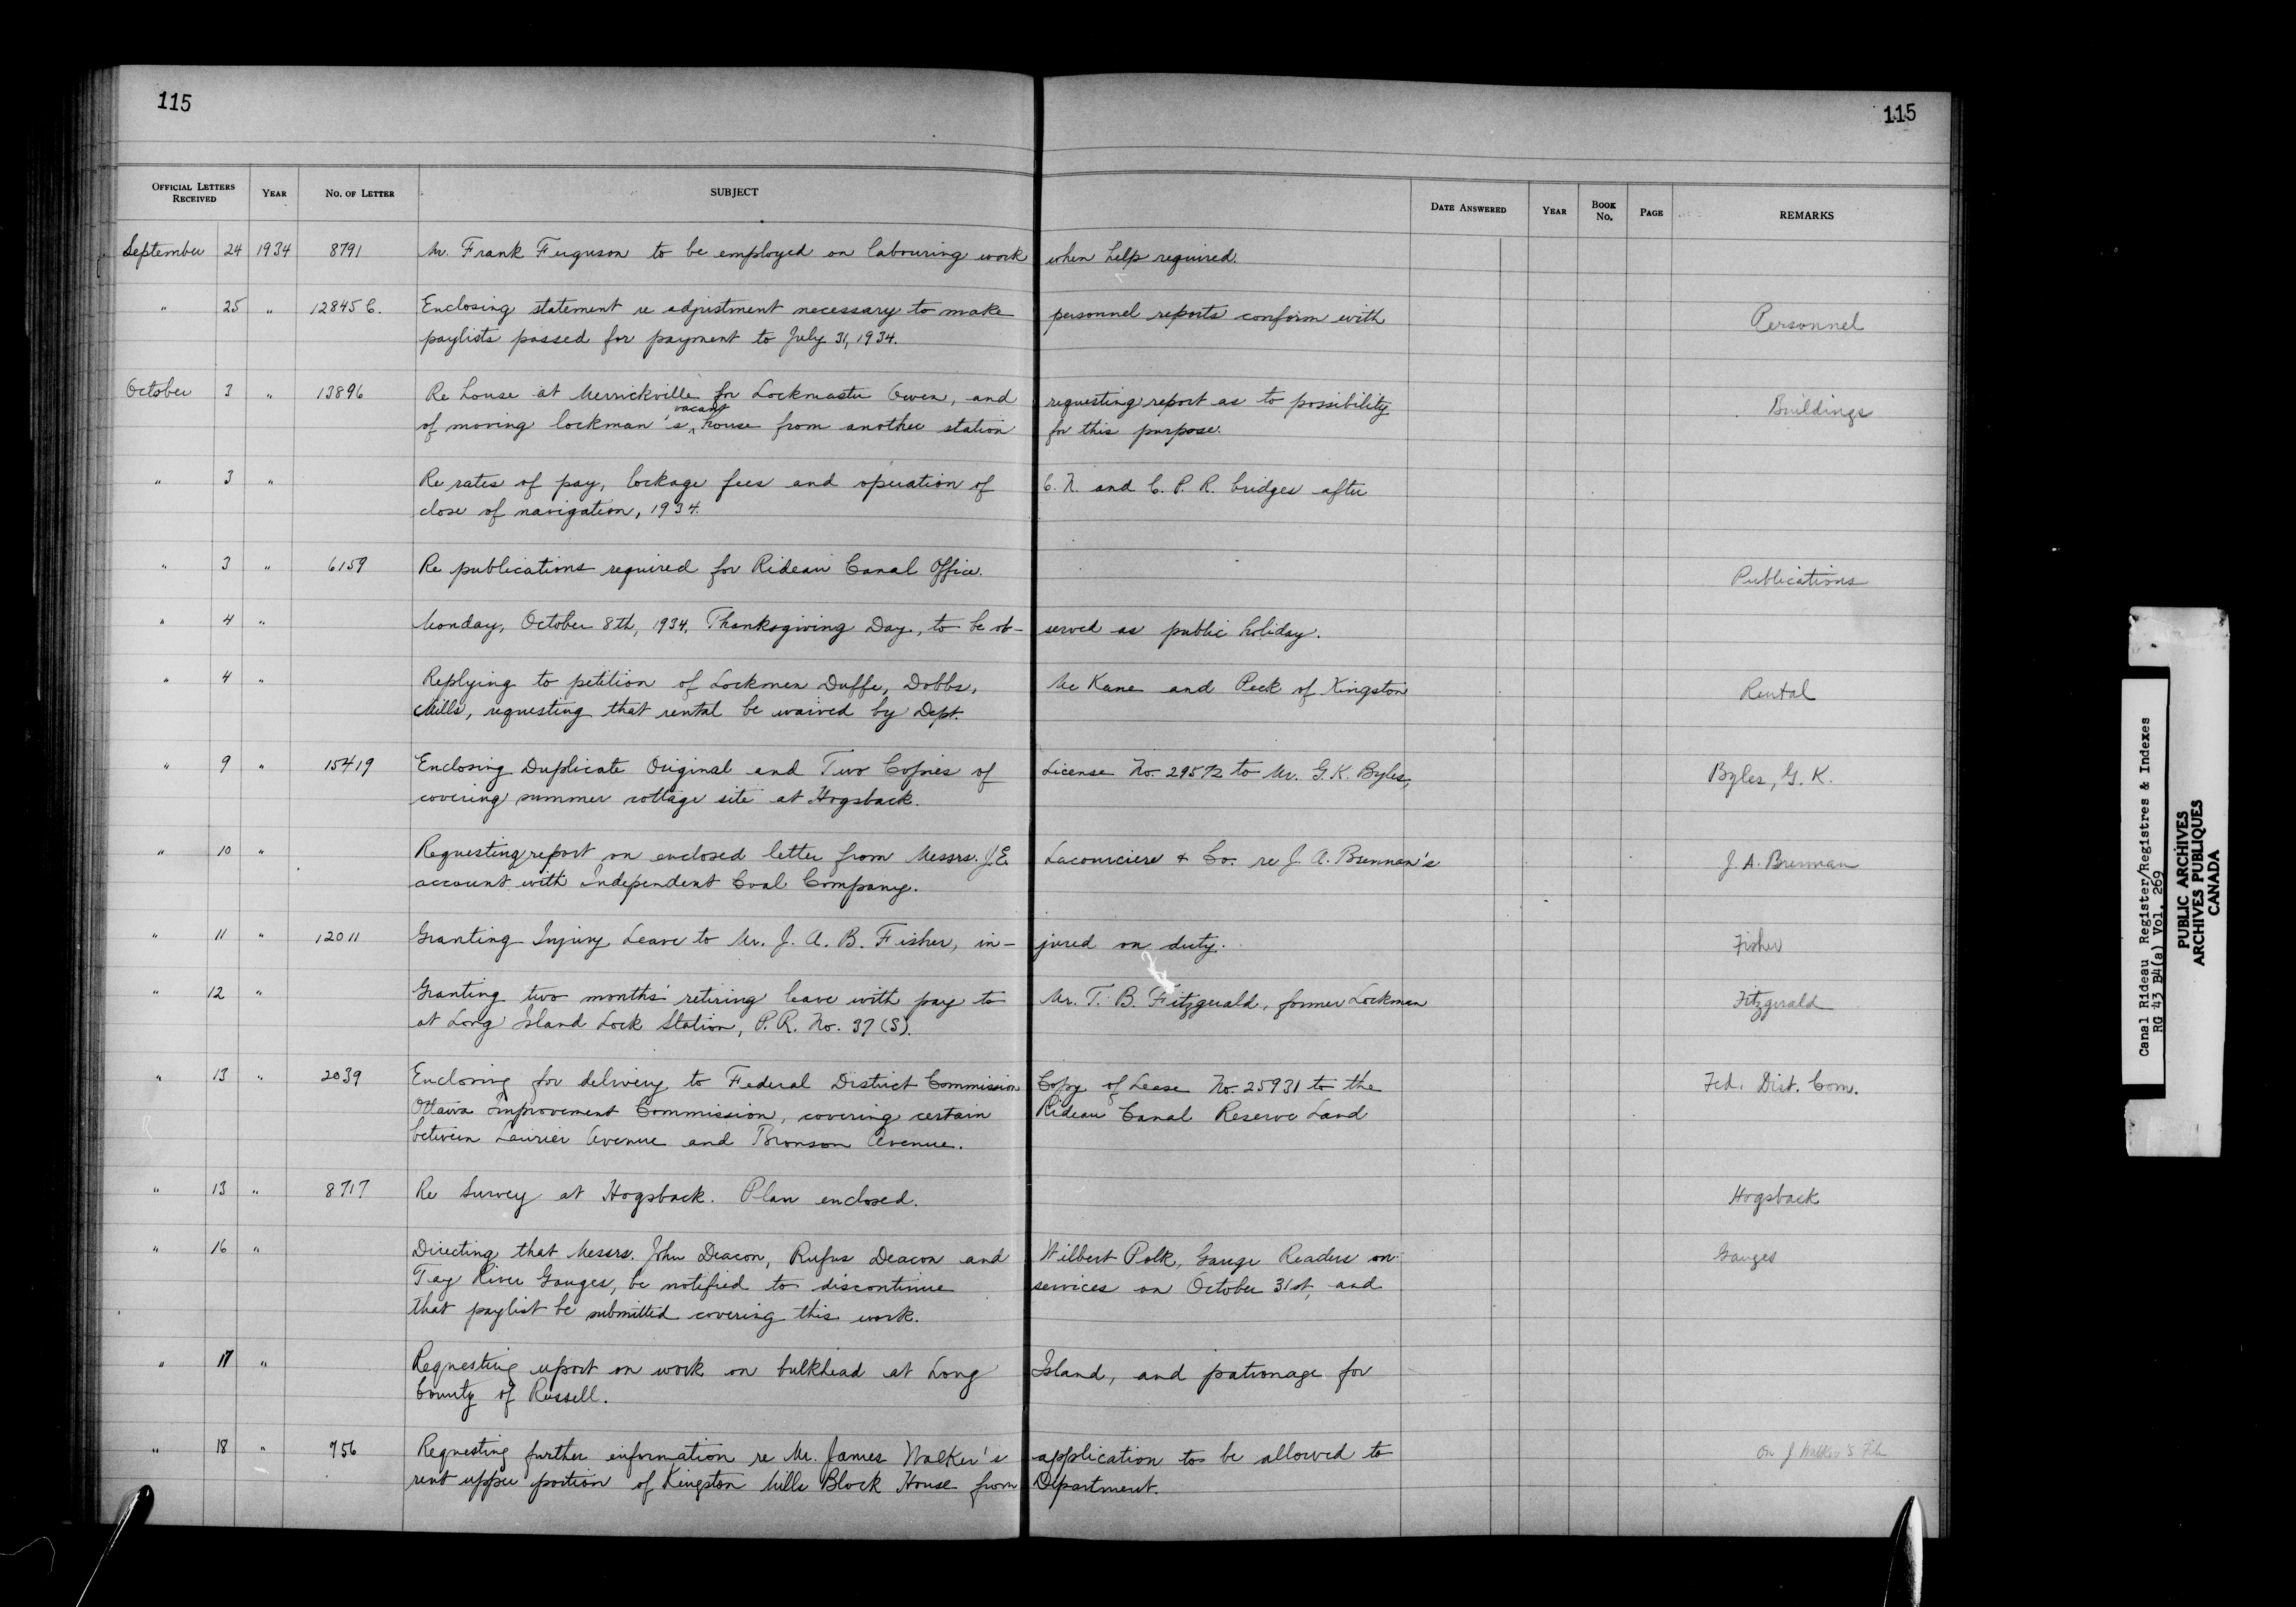 115
115
OFFICIAL LETTERS RECEIVED YEAR NO. OF LETTER SUBJECT DATE ANSWERED YEAR BOOK NO. PAGE REMARKS
September 24 1934 8791 Mr. Frank Ferguson to be employed on labouring work when help required.
" 25 " 12845 C. Enclosing statement re adjustment necessary to make personnel reports conform with Personnel
paylists passed for payment to July 31, 1934.
October 3 " 13896 Re house at Merrickville for Lockmaster Owen, and requesting report as to possibility Buildings
of moving lockman's vacant house from another station for this purpose.
" 3 " Re rates of pay, lockage fees and operation of C. N. and C. P. R. bridges after
close of navigation, 1934.
" 3 " 6159 Re publications required for Rideau Canal Office. Publications
" 4 " Monday, October 8th, 1934, Thanksgiving Day, to be ob- served as public holiday.
" 4 " Replying to petition of Lockmen Duffe, Dobbs, McKane and Peck of Kingston Rental
Mills, requesting that rental be waived by Dept.
" 9 " 15419 Enclosing Duplicate Original and Two Copies of License No. 29572 to Mr. G. K. Byles, Byles, G. K.
covering summer cottage site at Hogsback.
" 10 " Requesting report on enclosed letter from Messrs. J. E. Lacourciere & Co. re J. A. Brennan's J. A. Brennan
account with Independent Coal Company.
" 11 " 12011 Granting Injury Leave to Mr. J. A. B. Fisher, in- jured on duty. Fisher
" 12 " Granting two months' retiring leave with pay to Mr. T. B. Fitzgerald, former Lockman Fitzgerald
at Long Island Lock Station, P. R. No. 37 (S).
" 13 " 2039 Enclosing for delivery to Federal District Commission Copy of Lease No. 25931 to the Fed. Dist. Com.
Ottawa Improvement Commission, covering certain Rideau Canal Reserve Land
between Laurier Avenue and Bronson Avenue.
" 13 " 8717 Re Survey at Hogsback. Plan enclosed. Hogsback
" 16 " Directing that Messrs. John Deacon, Rufus Deacon and Wilbert Polk, Gauge Readers on Gauges
Tay River Gauges, be notified to discontinue services on October 31st, and
that paylist be submitted covering this work.
" 17 " Requesting report on work on bulkhead at Long Island, and patronage for
County of Russell.
" 18 " 756 Requesting further information re Mr. James Walker's application to be allowed to on J Walker's File
rent upper portion of Kingston Mills Block House from Department.
Canal Rideau Register/Registres & Indexes
RG 43 B4(a) Vol. 269
PUBLIC ARCHIVES
ARCHIVES PUBLIQUES
CANADA